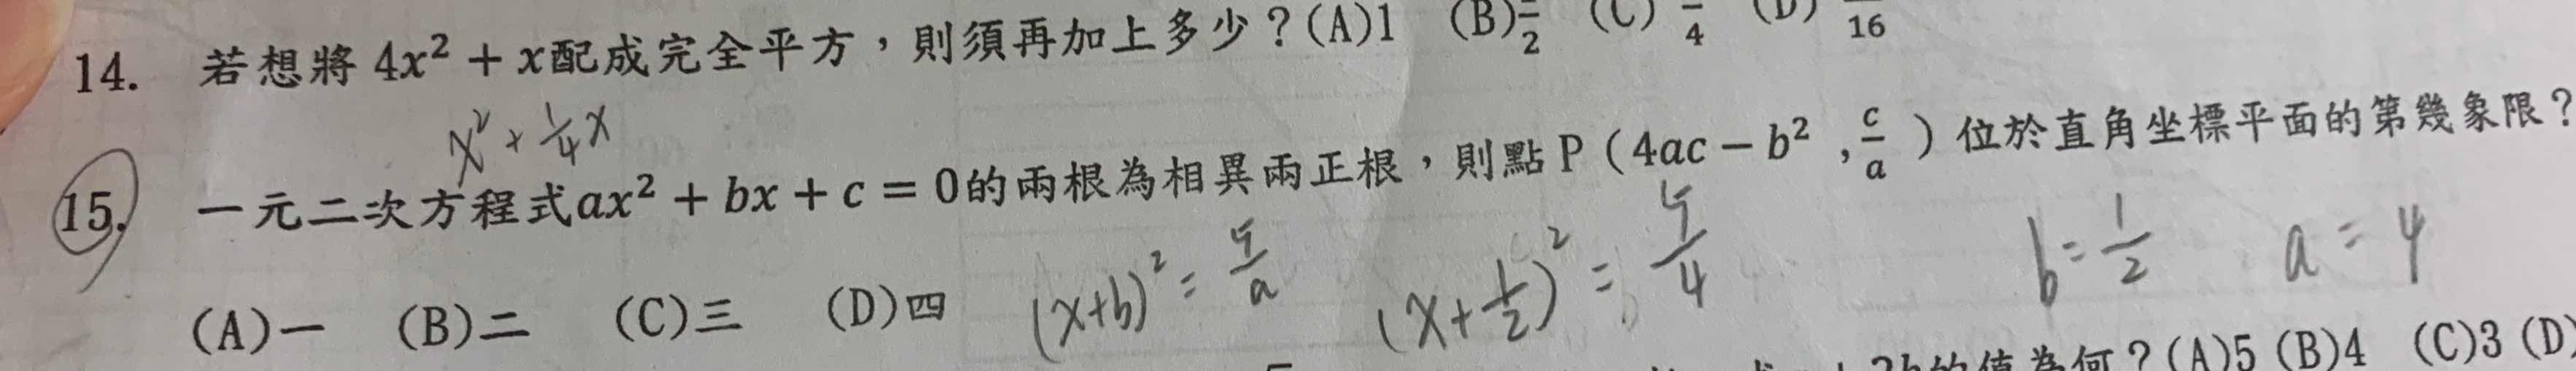 14. 若想將 4x² + x配成完全平方，則須再加上多少？(A)1 (B) 2 (C) 4 (D) 16
x² + 1/4 x
15. 一元二次方程式ax² + bx + c = 0的兩根為相異兩正根，則點 P（4ac − b² , c/a ）位於直角坐標平面的第幾象限？
(A)一 (B)二 (C)三 (D)四
(x+b)² = 5/a (x+1/2)² = 5/4 b = 1/2 a = 4
的值為何？(A)5 (B)4 (C)3 (D)